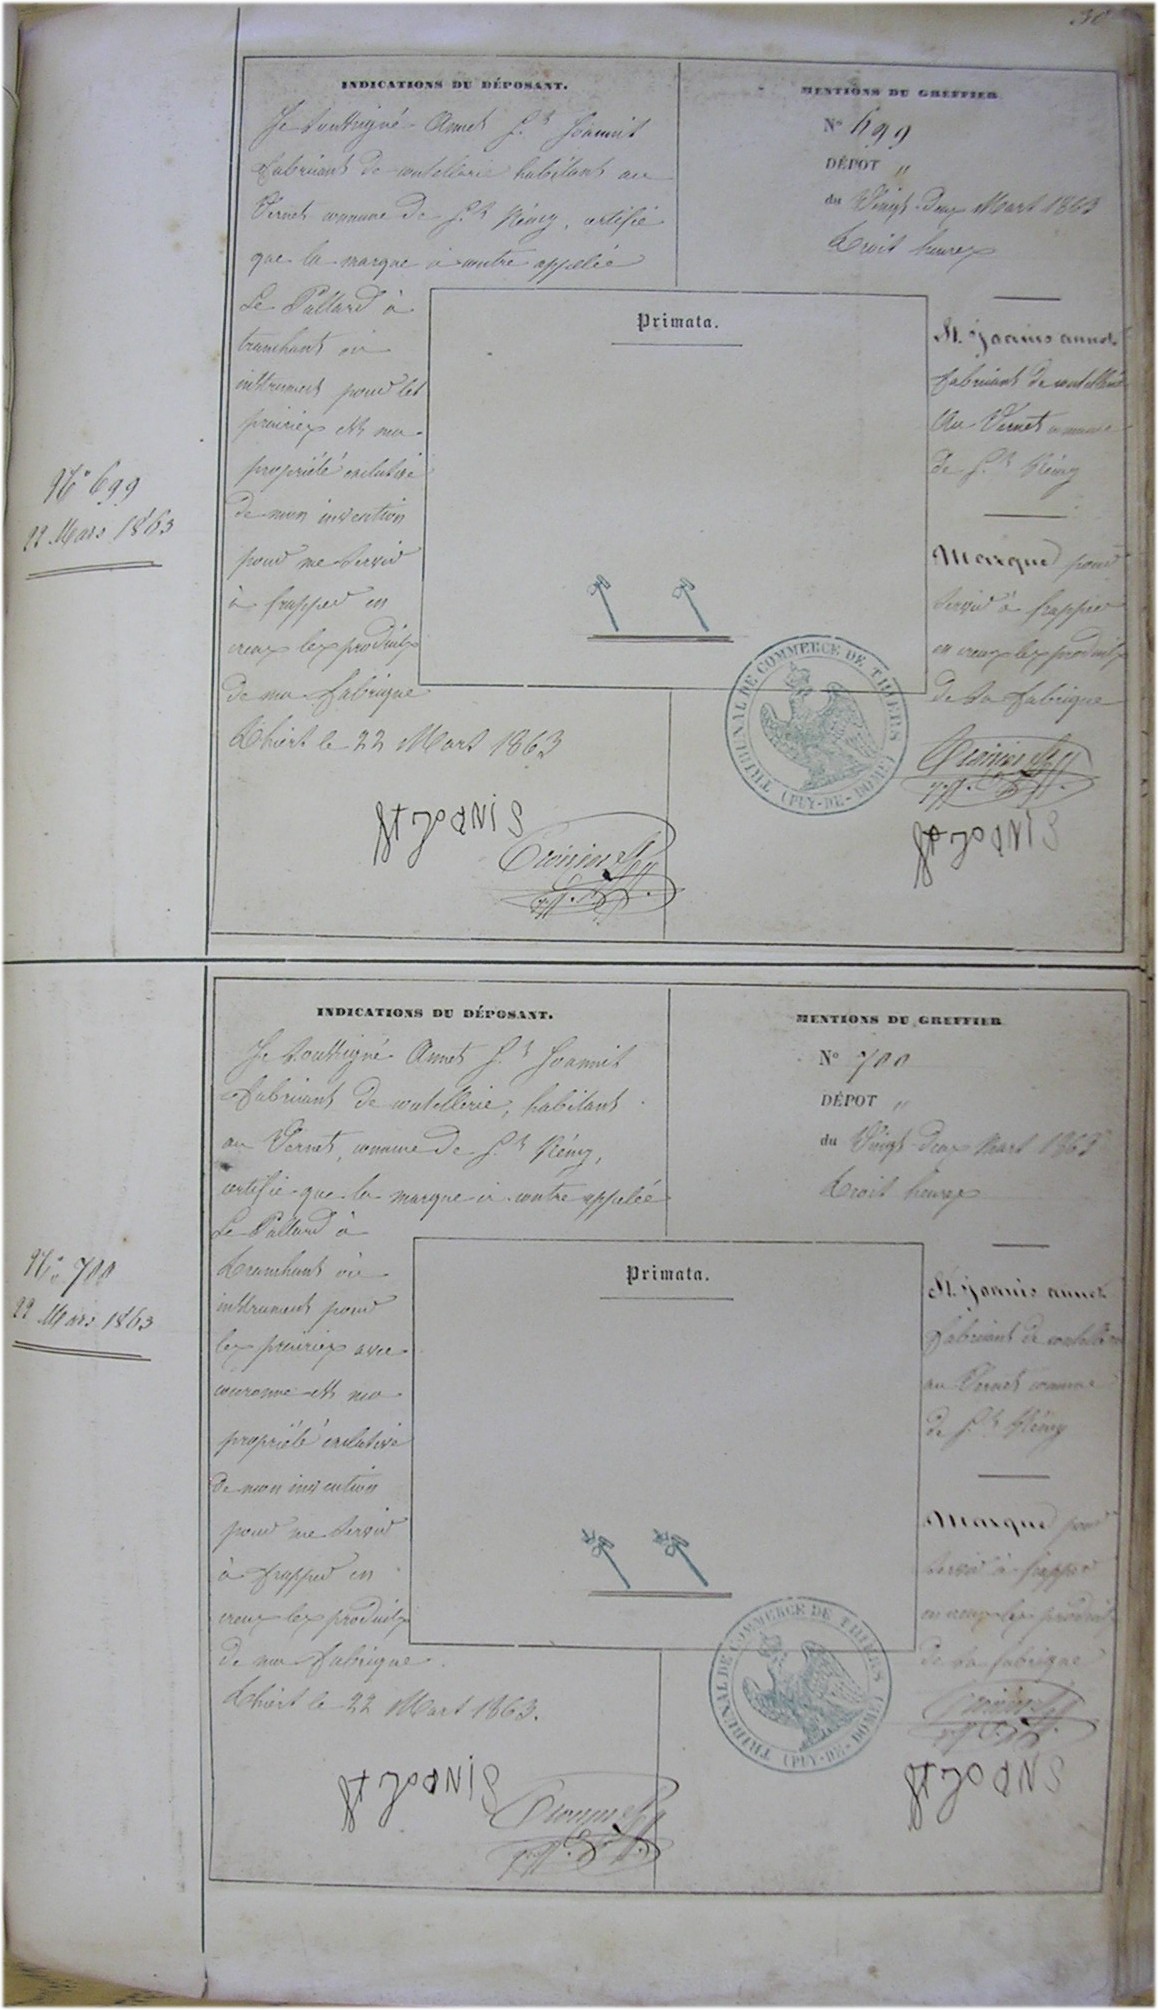 30
N° 699
22 Mars 1863
INDICATIONS DU DÉPOSANT.
Je soussigné Annet St Joannis
fabricant de coutellerie habitant au
Vernet commune de St Rémy, certifie
que la marque ci contre appelée
Le Paillard à
tranchant ou
instrument pour les
prairies est ma
propriété exclusive
de mon invention
pour me servir
à frapper en
creux les produits
de ma fabrique
Thiers le 22 Mars 1863
St JOANIS
Primata.
MENTIONS DU GREFFIER
N° 699
DÉPOT "
du Vingt deux Mars 1863
trois heures
St. Joanis annet
fabricant de coutellerie
Au Vernet commune
de St Rémy
Marque pour
servir à frapper
en creux les produits
de sa fabrique
St JOANIS
TRIBUNAL DE COMMERCE DE THIERS (PUY-DE-DOME)
N° 700
22 Mars 1863
INDICATIONS DU DÉPOSANT.
Je soussigné Annet St Joannis
fabricant de coutellerie, habitant
au Vernet, commune de St Rémy,
certifie que la marque ci contre appelée
Le Paillard à
tranchant ou
instrument pour
les prairies avec
couronne est ma
propriété exclusive
de mon invention
pour me servir
à frapper en
creux les produits
de ma fabrique.
Thiers le 22 Mars 1863.
St JOANIS
Primata.
MENTIONS DU GREFFIER
N° 700
DÉPOT "
du Vingt deux Mars 1863
trois heures
St. Joanis annet
fabricant de coutellerie
au Vernet commune
de St Rémy
Marque pour
servir à frapper
en creux les produits
de sa fabrique
St JOANS
TRIBUNAL DE COMMERCE DE THIERS (PUY-DE-DOME)